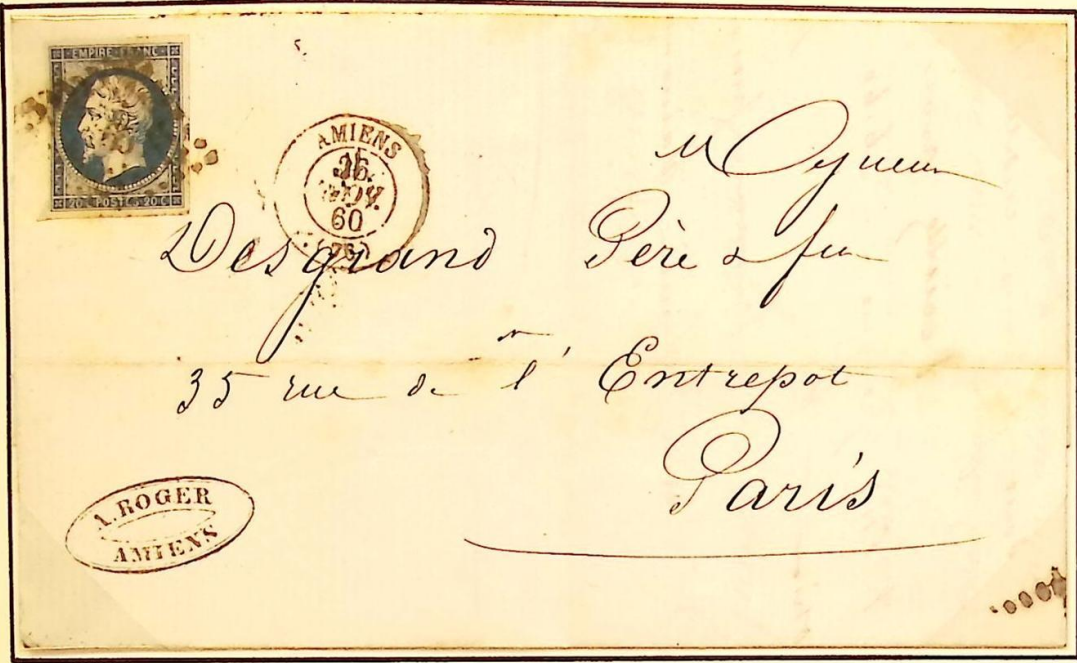 EMPIRE FRANC
20 C POSTES 20 C
AMIENS
NOV.
60
(76)
Desgrand Père & fils
35 rue de l' Entrepot
Paris
A. ROGER
AMIENS